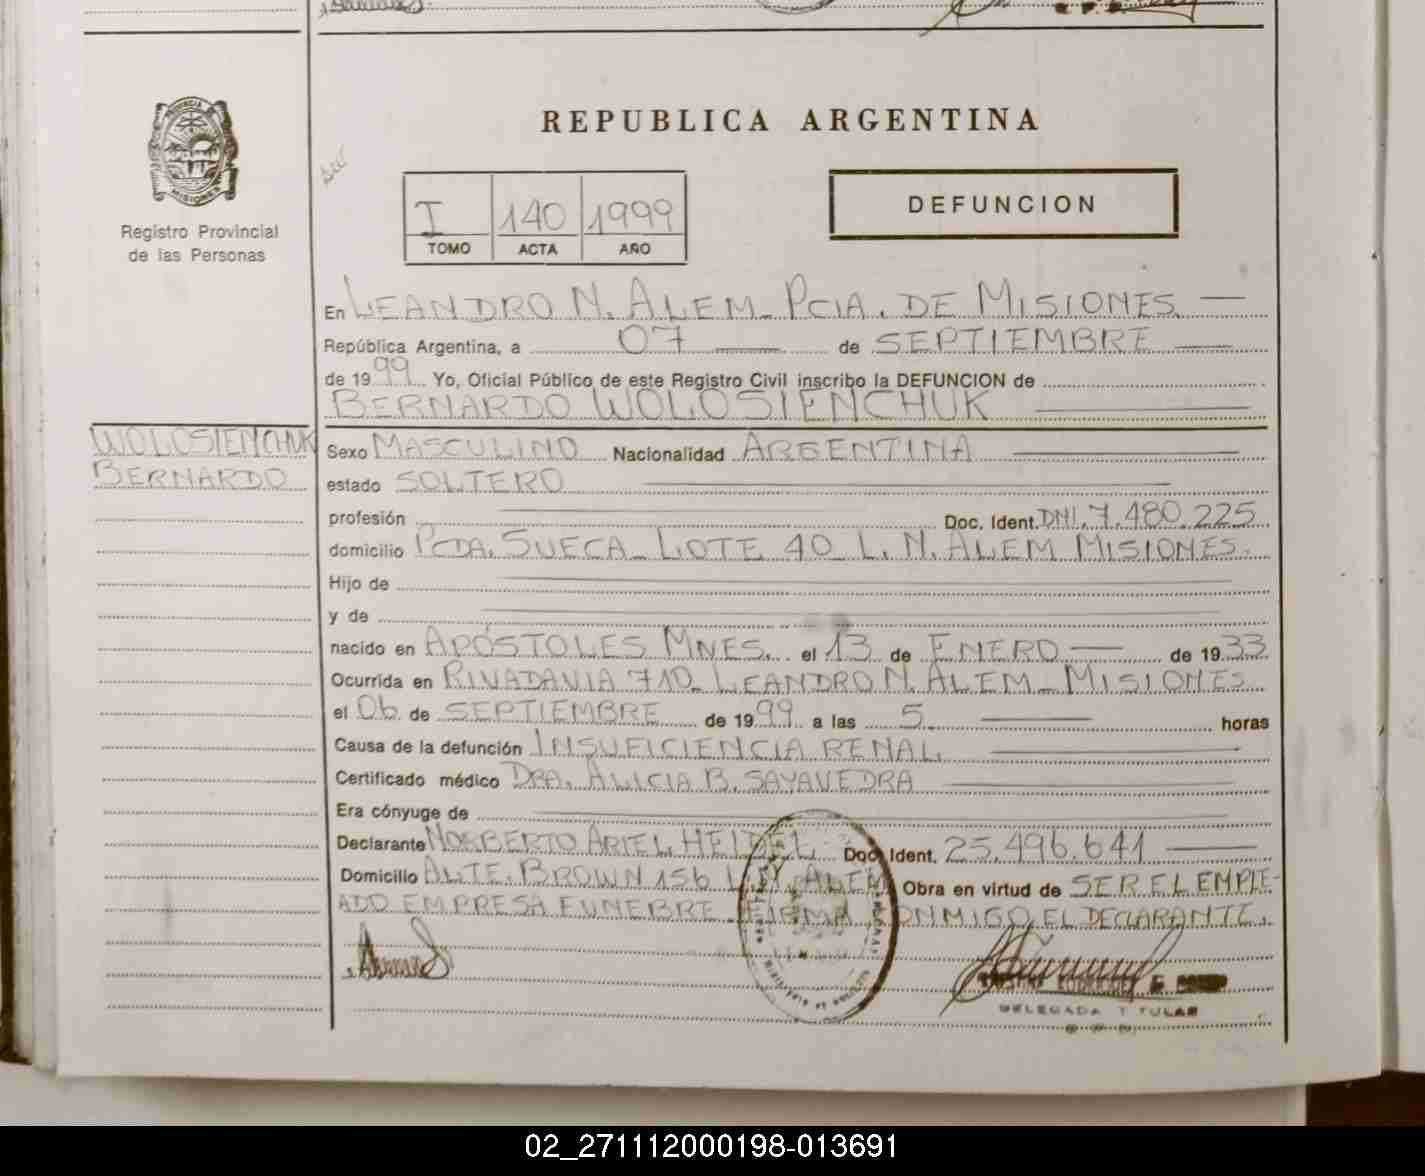 REPUBLICA ARGENTINA
PROVINCIA DE
MISIONES
Registro Provincial
de las Personas
I 140 1999
TOMO ACTA AÑO
DEFUNCION
En LEANDRO N. ALEM - PCIA. DE MISIONES
República Argentina, a 07 de SEPTIEMBRE
de 1999 Yo, Oficial Público de este Registro Civil inscribo la DEFUNCION de
BERNARDO WOLOSIENCHUK
WOLOSIENCHUK
BERNARDO
Sexo MASCULINO Nacionalidad ARGENTINA
estado SOLTERO
profesión Doc. Ident. DNI. 7.480.225
domicilio PCDA. SUECA - LOTE 40 - L. N. ALEM MISIONES.
Hijo de
y de
nacido en APÓSTOLES MNES. el 13 de ENERO de 1933
Ocurrida en RIVADAVIA 710 - LEANDRO N. ALEM - MISIONES
el 06 de SEPTIEMBRE de 1999 a las 5 horas
Causa de la defunción INSUFICIENCIA RENAL
Certificado médico DRA. ALICIA B. SAYAVEDRA
Era cónyuge de
Declarante NORBERTO ARIEL HEIDEL Doc. Ident. 25.496.641
Domicilio ALTE. BROWN 156 L. N. ALEM Obra en virtud de SER EL EMPLE-
ADO EMPRESA FUNEBRE - FIRMA CONMIGO EL DECLARANTE.
DELEGADA TITULAR
02_271112000198-013691